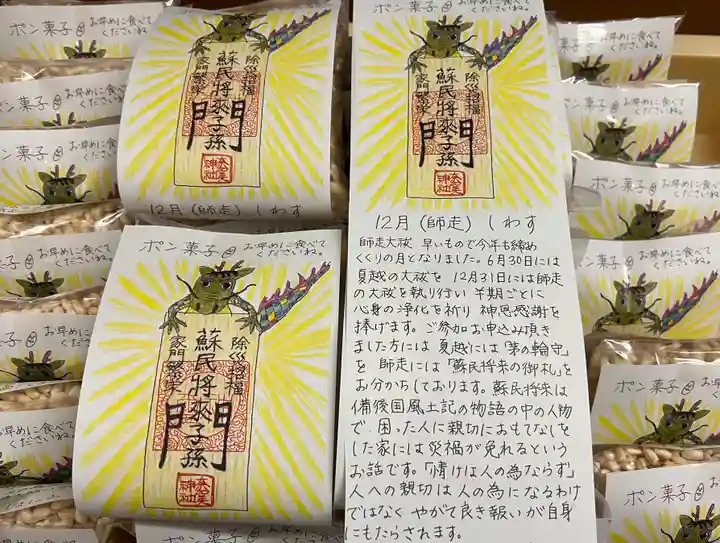 ポン菓子 お早めに食べてくださいね。
ポン菓子 お早めに食べてくださいね。
ポン菓子 お早めに食べてくださいね。
ポン菓子 お早めに食べてくださいね。
除災招福
蘇民将來子孫
家門繁栄
門
神社
12月(師走) しわす
ポン菓子 お早めに食べてくださいね。
除災招福
蘇民将來子孫
家門繁栄
門
神社
除災招福
蘇民将來子孫
家門繁栄
門
神社
12月(師走) しわす
師走大祓 早いもので今年も締め
くくりの月となりました。6月30日には
夏越の大祓を 12月31日には師走
の大祓を執り行い 半期ごとに
心身の浄化を祈り 神恩感謝を
捧げます。ご参加お申込み頂き
ました方には 夏越には「茅の輪守」
を 師走には「蘇民将来の御札」を
お分かちしております。蘇民将来は
備後国風土記の物語の中の人物
で、困った人に親切におもてなしを
した家には災禍が免れるという
お話です。「情けは人の為ならず」
人への親切は人の為になるわけ
ではなく やがて良き報いが自身
にもたらされます。
お早めに食べてくださいね。
お早めに食べてくださいね。
お早めに食べてくださいね。
ポン菓子 お早めに食べてくださいね。
ポン菓子 お早めに食べてくださいね。
ポン菓子 お早めに食べてくださいね。